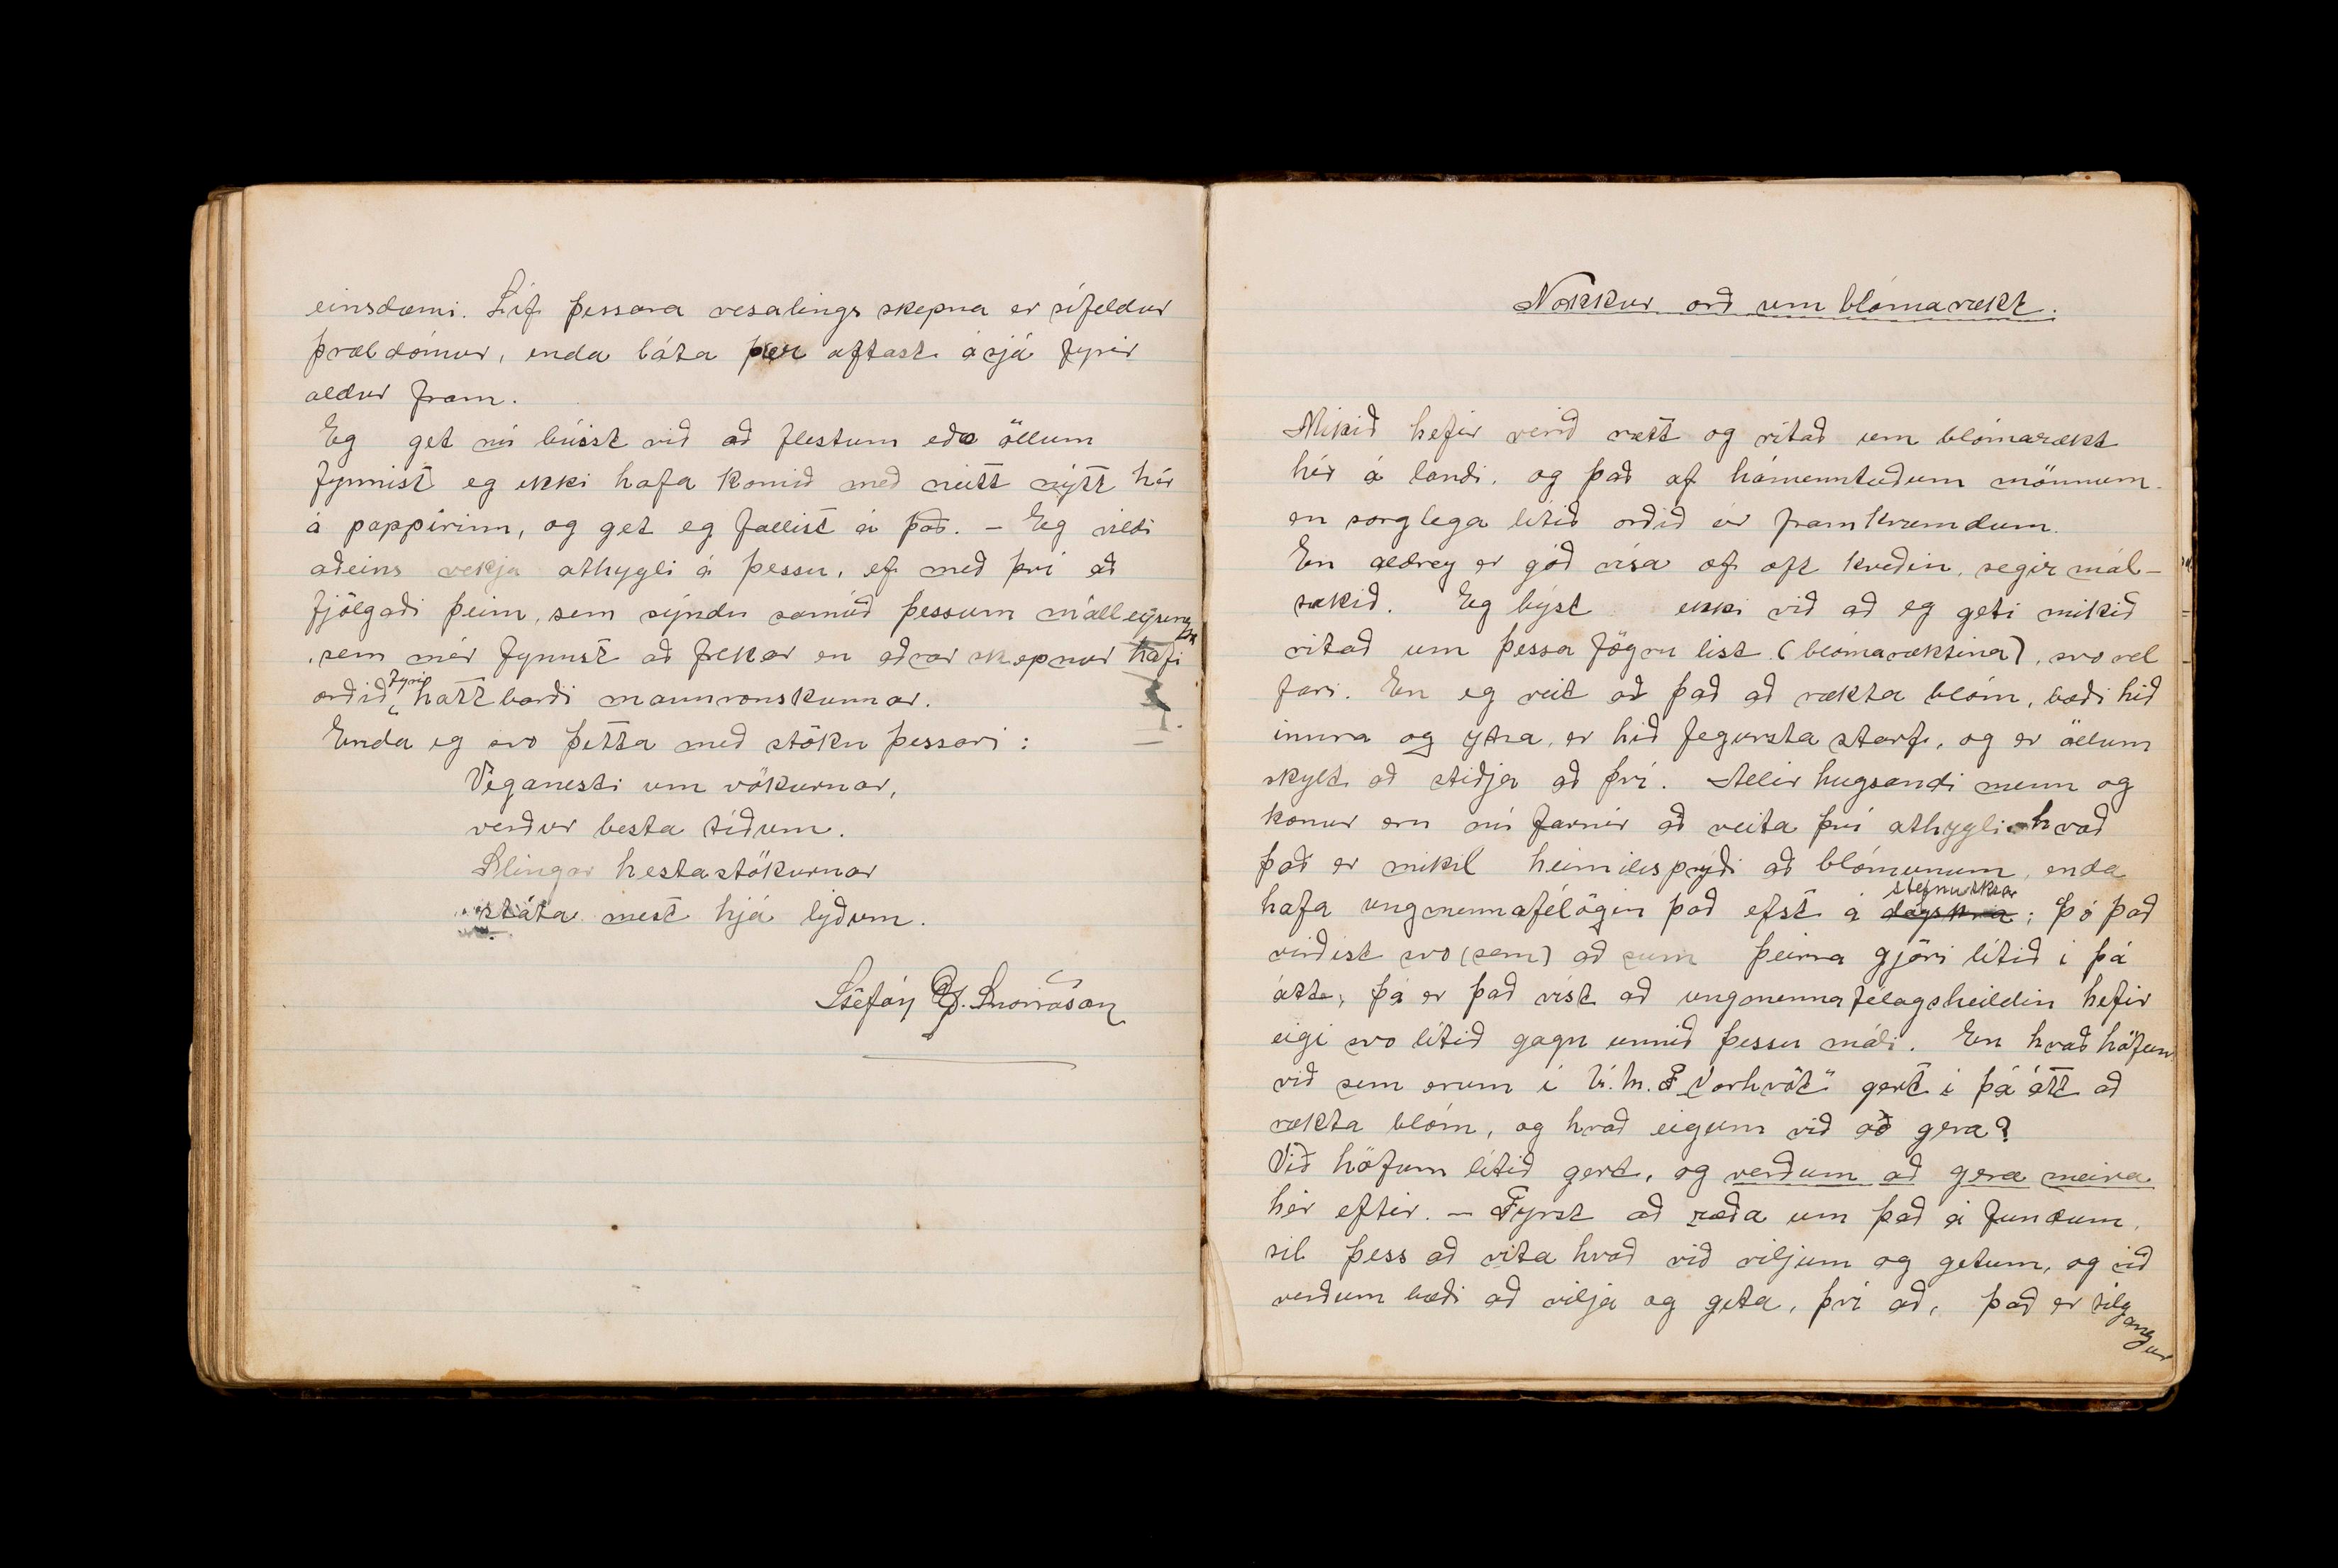 einsdæmi. Líf þessara vesalings skepna er sífeldur
þrældómur, enda láta þær oftast á sjá fyrir
aldur fram.
Eg get nú búist við að flestum eða öllum
fynnist eg ekki hafa komið með neitt nýtt hér
á pappírinn, og get eg fallist á það. – Eg vildi
aðeins vekja athygli á þessu, ef með því að
fjölgaði þeim, sem sýndu samúð þessum málleysingjum
, sem mér fynnst að frekar en aðrar skepnur hafi
orðið fyrir hattbarði mannvonskunnar.
Enda eg svo þetta með stöku þessari:
Veganesti um vökurnar,
verður besta tíðum.
Slingar hestastökurnar
státa mest hjá lýðum.
Stefán G. Snorrason
Nokkur orð um blómarækt.
Mikið hefir verið rætt og ritað um blómarækt
hér á landi, og það af hámenntuðum mönnum.
en sorglega lítið orðið úr framkvæmdum.
En aldrey er góð vísa of oft kveðin, segir mál-
tækið. Eg býst ekki við að eg geti mikið
ritað um þessa fögru list (blómaræktina), svo vel
fari. En eg veit að það að rækta blóm, bæði hið
innra og ytra, er hið fegursta starf, og er öllum
skylt að stiðja að því. Allir hugsandi menn og
konur eru nú farnir að veita því athygli hvað
það er mikil heimilisprýði að blómunum, enda
hafa ungmennafélögin það efst á dagskrá stefnuskrá; þó það
virðist svo (sem) að sum þeirra gjöri lítið í þá
átt, þá er það víst að ungmennafélagsheildin hefir
eigi svo lítið gagn unnið þessu máli. En hvað höfum
við sem erum í U.M.F. „Vorhvöt" gert í þá átt að
rækta blóm, og hvað eigum við að gera?
Við höfum lítið gert, og verðum að gera meira
hér eftir. – Fyrst að ræða um það á fundum,
til þess að vita hvað við viljum og getum, og við
verðum bæði að vilja og geta, því að, það er tilgangur